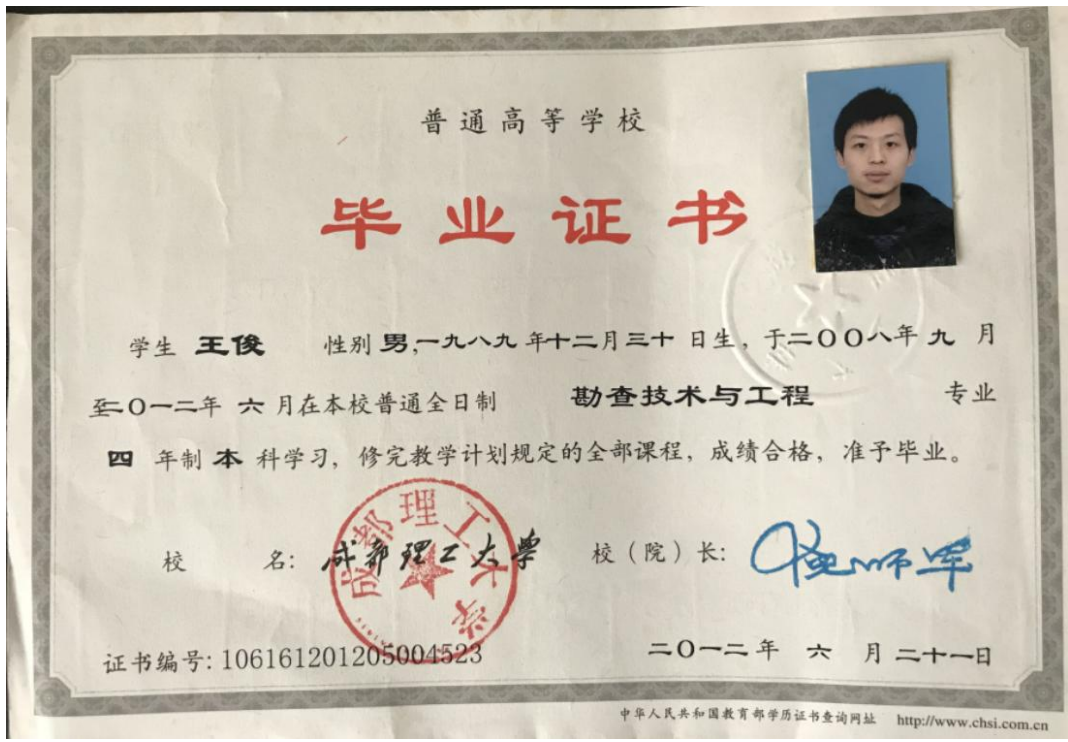 普通高等学校
毕业证书
学生 王俊 性别 男,一九八九年十二月三十日生，于二〇〇八年九月
至二〇一二年 六月在本校普通全日制 勘查技术与工程 专业
四 年制 本 科学习，修完教学计划规定的全部课程，成绩合格，准予毕业。
校 名: 成都理工大学 校（院）长:
成都理工大学
证书编号: 106161201205004523 二〇一二年 六 月 二十一日
中华人民共和国教育部学历证书查询网址 http://www.chsi.com.cn